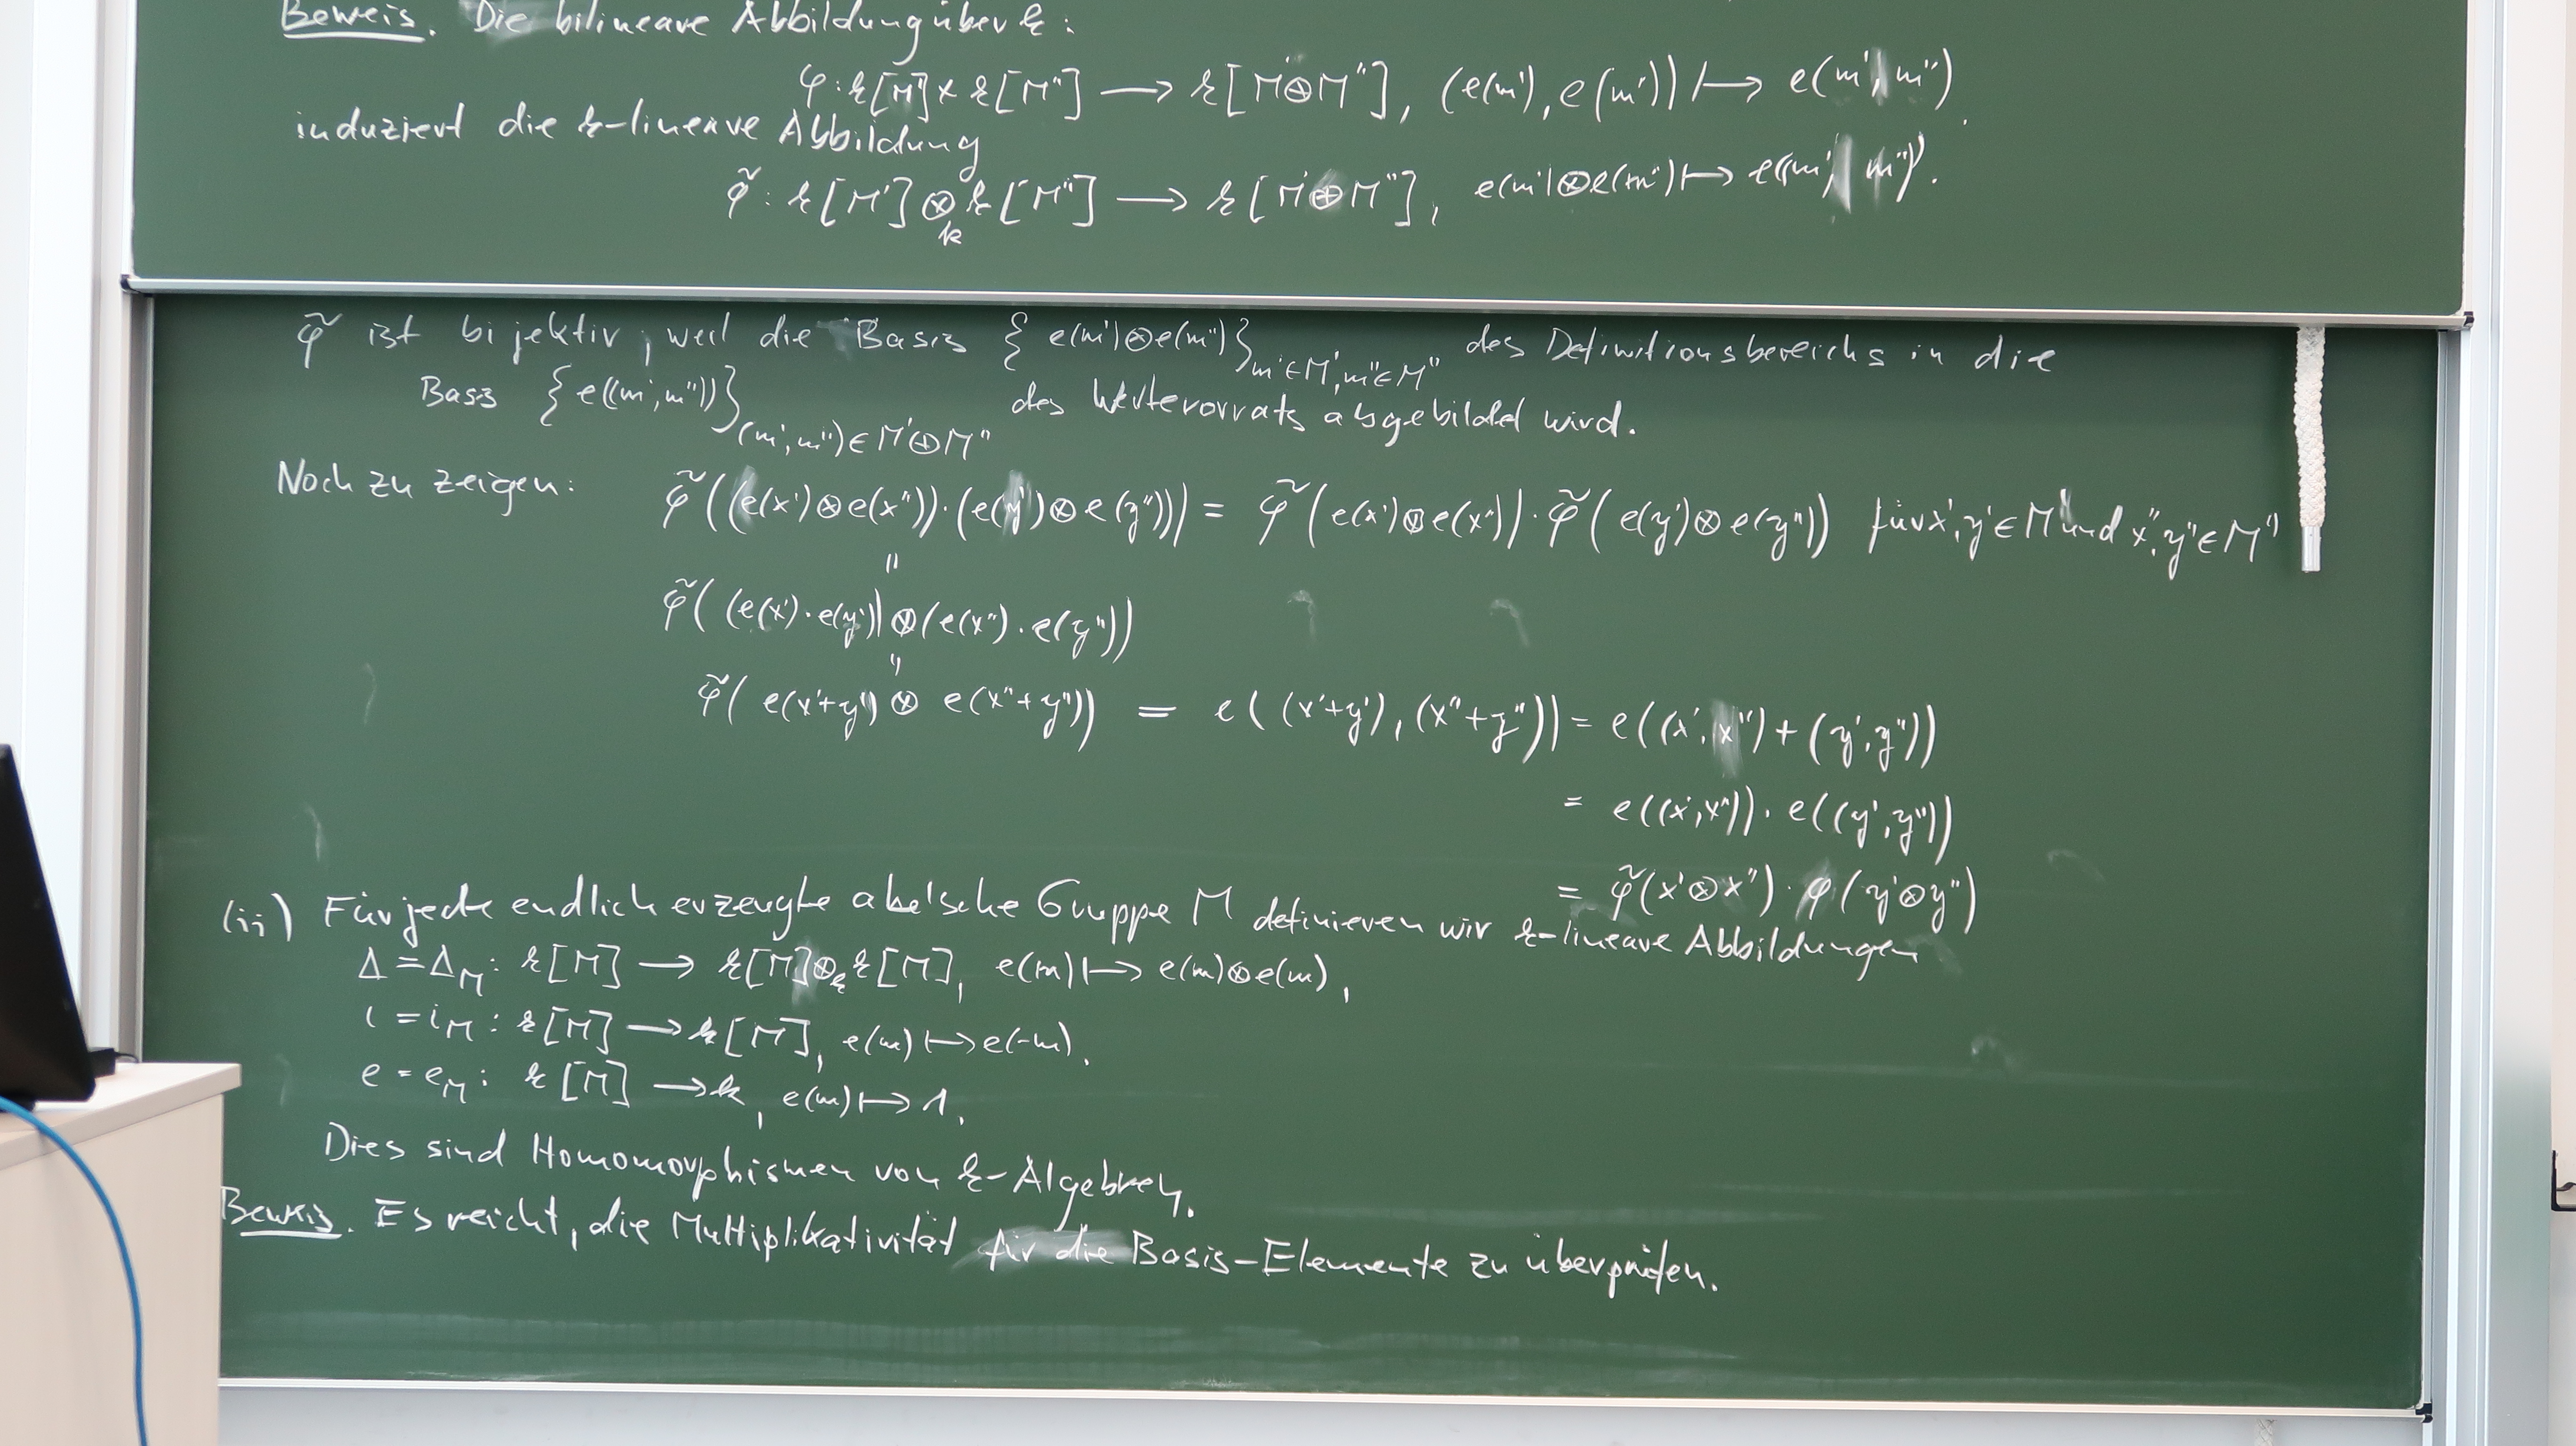 Beweis. Die bilineare Abbildung über k:
φ: k[M'] × k[M''] ⟶ k[M'⊕M''], (e(m'), e(m'')) ⟼ e(m', m'').
induziert die k-lineare Abbildung
φ̃: k[M'] ⊗_k k[M''] ⟶ k[M'⊕M''], e(m')⊗e(m'') ⟼ e((m', m'')).
φ̃ ist bijektiv, weil die Basis {e(m')⊗e(m'')}_{m'∈M', m''∈M''} des Definitionsbereichs in die
Basis {e((m', m''))}_{(m', m'')∈M'⊕M''} des Wertevorrats abgebildet wird.
Noch zu zeigen: φ̃((e(x')⊗e(x''))·(e(y')⊗e(y''))) = φ̃(e(x')⊗e(x''))·φ̃(e(y')⊗e(y'')) für x', y'∈M' und x'', y''∈M''
=
φ̃((e(x')·e(y'))⊗(e(x'')·e(y'')))
=
φ̃(e(x'+y')⊗e(x''+y'')) = e((x'+y'), (x''+y'')) = e((x', x'')+(y', y''))
= e((x', x''))·e((y', y''))
= φ̃(x'⊗x'')·φ(y'⊗y'')
(ii) Für jede endlich erzeugte abelsche Gruppe M definieren wir k-lineare Abbildungen
Δ = Δ_M: k[M] ⟶ k[M]⊗_k k[M], e(m) ⟼ e(m)⊗e(m),
i = i_M: k[M] ⟶ k[M], e(m) ⟼ e(-m).
e = e_M: k[M] ⟶ k, e(m) ⟼ 1.
Dies sind Homomorphismen von k-Algebren.
Beweis. Es reicht, die Multiplikativität für die Basis-Elemente zu überprüfen.